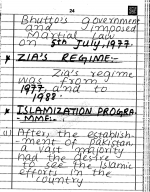 24
Bhutto's government
and imposed
Martial Law
on 5th July, 1977.
* ZIA'S REGIME:-
Zia's regime
was from
1977 and to
1988.
* ISLAMIZATION PROGRA-
MME:-
(i) After, the establish-
-ment of pakistan,
a vast majority
had the desire
to see the Islamic
efforts in the
country